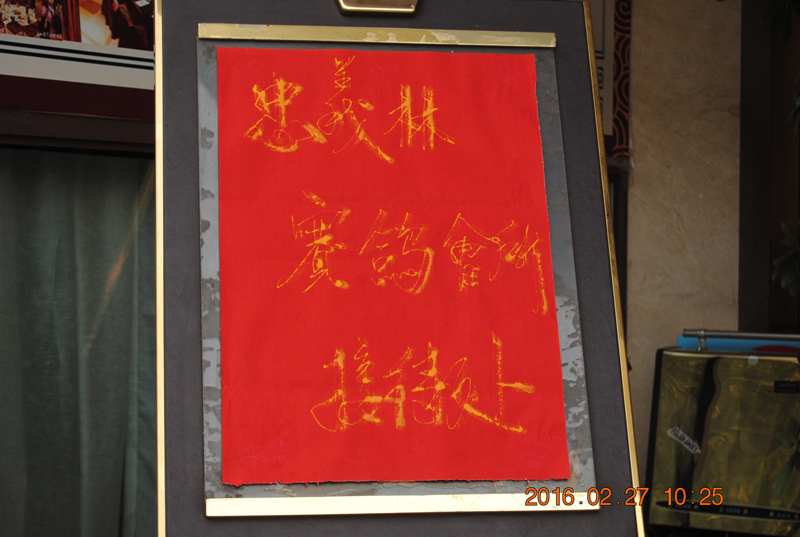 忠義林
賽鴿會所
接待处
2016.02.27 10:25